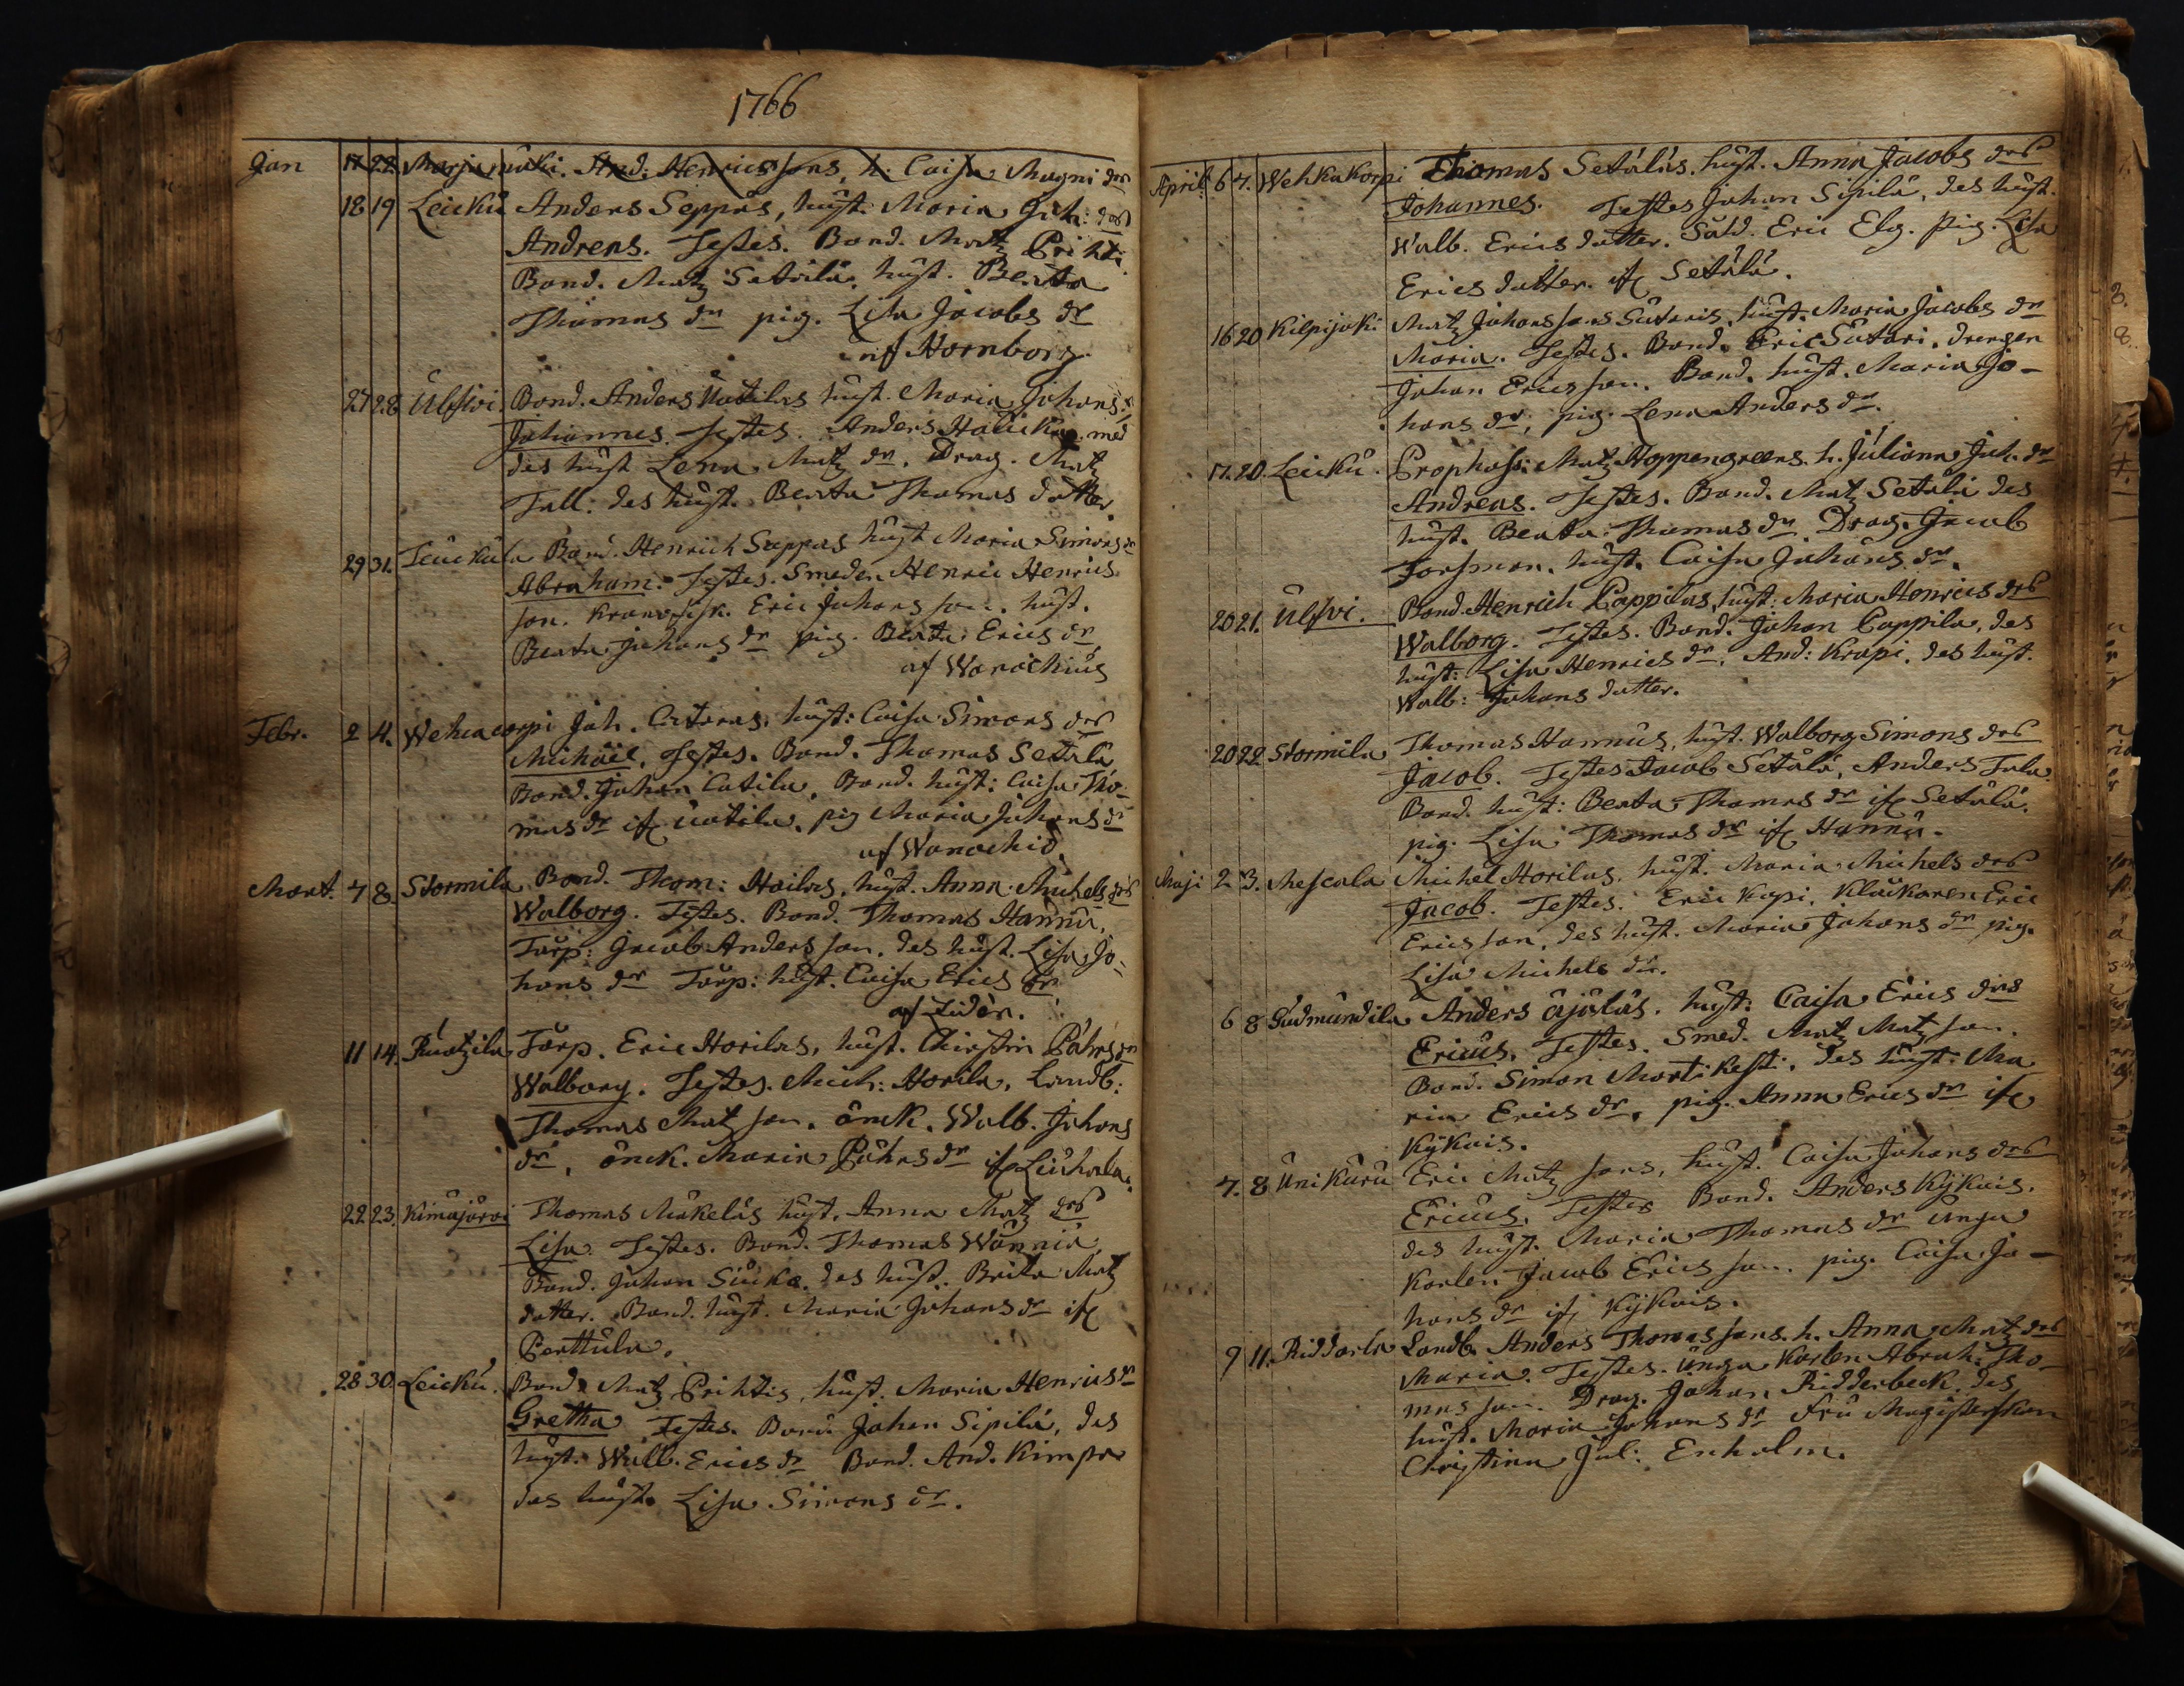 1766
Jan 17 22 Marjamäki. And: Henrics sons, h. Caisa Magni dr
18 19 Leickü Anders Seppäs, hust. Maria Joh: drs
Andreas. Testes. Bond. Matz Prihti
Bond. Matz Setälä, hust. Beata
Thomas dr pig. Lisa Jacobs dr
if Hornborg.
27 28 Ülfswi. Bond. Anders Uotilas hust. Maria Johans dr
Johannes. Testes. Anders med
des hust Lena Matz dr. Drag. Matz
Tall. des hust. Beata Thomas dotter.
29 31. Bond. Henrich Seppas hust Maria Simons dr
Abraham. Testes. Smeden Henric Henrics
son. Eric Johans son. hust.
Beata Johans dr pig. Beata Erics dr
af Wanachius
Febr. 2 4. Wehcacorpi Joh. hust: Caisa Simons drs
Michäel. Testes. Bond. Thomas Setälä
Bond. Johan Catila, Bond. hust: Caisa Tho-
mas dr if uotila. pig Maria Johans dr
af Wanochio
Mart. 7 8. Stormila Bond. Thom: hust. Anna Michels drs
Walborg. Testes. Bond. Thomas Hannu,
Torp: Jacob Anders son, des hust. Lisa Jo-
hans dr Torp: hust. Caisa Erics dr
af Lidèn.
11 14. Ruotzila Torp. Eric Horilas, hust. Christin Påhrs dr
Walborg. Testes. Mich: Horila, Landb:
Thomas Matz son. änck. Walb. Johans
dr, änck. Maria Påhrs dr if Liuhala.
22 23. Kimäjärvi Thomas Mäkeläs hust. Anna Matz drs
Lisa. Testes. Bond. Thomas Wännilä,
Bond. Johan des hust. Brita Matz
dotter. Bond. hust. Maria Johans dr if
Perttula.
28 30. Leickü. Bond. Matz Prihtis, hust. Maria Henrics dr
Gretha Testes. Bond. Johan Sipilä, des
hust. Walb. Erics dr Bond. And. Kimpa
des hust. Lisa Simons dr.
April. 6 7. Wehkakorpi Thomas Setäläs. hust. Anna Jacobs drs
Johannes. Testes Johan Sipilä, des hust.
Walb. Erics dotter. Sold. Eric Elg. pig. Lisa
Erics dotter. if Setälä.
16 20 Kilpijoki Matz Johans sons Sutaris, hust. Maria Jacobs dr
Maria. Testes. Bond. Eric Sutari. drengen
Johan Ericsson. Bond. hust. Maria Jo-
hans dr, pig. Lena Anders dr.
17. 20. Leickü. Prophoss: Matz Hoppengreens. h. Juliana Joh. dr
Andreas. Testes. Bond. Matz Setälä des
hust. Beata Thomas dr Drag. Jacob
Forsman. hust. Caisa Johans dr.
20 21. Ülfswi. Bond. Henrich Cappilas, hust: Maria Henrics drs
Walborg. Testes. Bond. Johan Cappila, des
hust: Lisa Henrics dr. And: Krapi. des hust.
Walb: Johans dotter.
20 22. Stormila Thomas Hannus, hust. Walborg Simons drs
Jacob. Testes Jacob Setälä, Anders Tala
Bond. hust: Beata Thomas dr if Setälä.
pig. Lisa Thomas dr if Hannu.
Maji 2 3. Mescala Michel Horilas. hust. Maria Michels drs
Jacob. Testes. Eric Klåckaren Eric
Ericsson, des hust. Maria Johans dr pig.
Lisa Michels dr.
6 8 Gudmundila Anders Äjäläs. hust: Caisa Erics drs
Ericus. Testes. Smed. Matz Matz son.
Bond. Simon Martikesti. des hust: Ma
ria Erics dr, pig. Anna Erics dr if
Kÿkois.
7. 8 Unikuru Eric Matz sons, hust. Caisa Johans drs
Ericus. Testes Bond. Anders Kÿkois.
des hust. Maria Thomas dr unga
Karlen Jacob Ericsson. pig. Caisa Jo-
hans dr if Kÿkois.
9 11. Riddarla Landb. Anders Thomas sons. h. Anna Matz drs
Maria. Testes. Unga Karlen Abrah. Tho-
mas son. Drag. Johan Ridderbeck. des
hust. Maria Johans dr Fru Magisterskan
Christina Jul: Enholm.